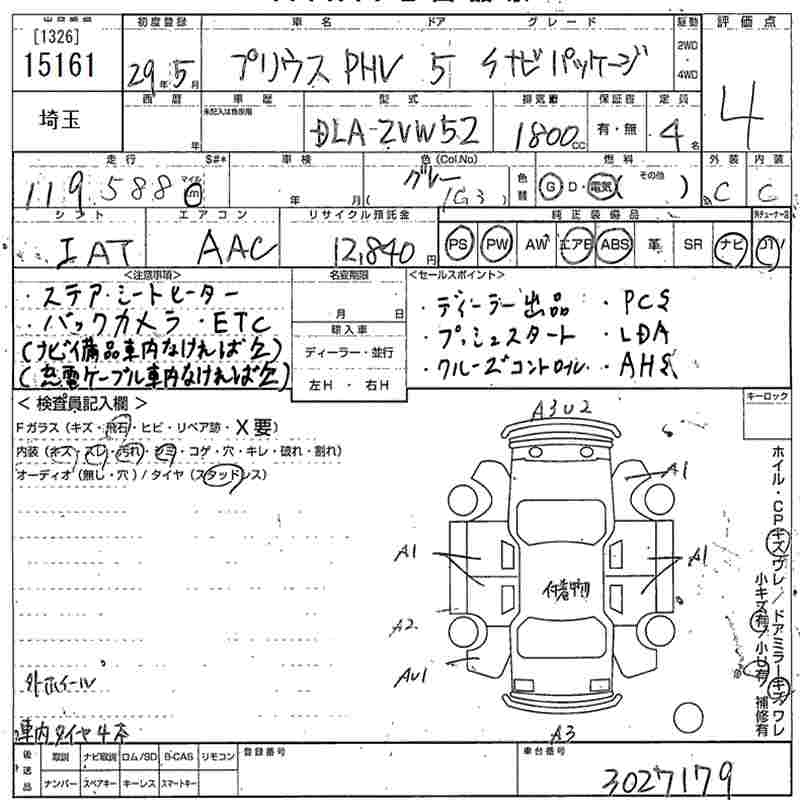 [1326]
15161
埼玉
初度登録 29年5月
車名 プリウス PHV
ドア 5
グレード Sナビパッケージ
駆動 2WD・4WD
評価点 4
西暦 年
車歴 未記入は自家用
型式 DLA-ZVW52
排気量 1800cc
保証書 有・無
定員 4名
走行 119588 マイル km
S#*
車検 年 月
色(Col.No) グレー (1G3)
色替
燃料 G D・電気( その他 )
外装 C
内装 C
シフト IAT
エアコン AAC
リサイクル預託金 12,840円
純正装備品
PS PW AW エアB ABS 革 SR ナビ
<注意事項>
・ステア・シートヒーター
・バックカメラ・ETC
(ナビ備品車内なければ欠)
(充電ケーブル車内なければ欠)
名変期限 月 日
輸入車
ディーラー・並行
左H・右H
<セールスポイント>
・ディーラー出品 ・PCS
・プッシュスタート ・LDA
・クルーズコントロール ・AHS
<検査員記入欄>
Fガラス(キズ・飛石・ヒビ・リペア跡・X要)
内装(キズ・スレ・汚れ・シミ・コゲ・穴・キレ・破れ・割れ)
オーディオ(無し・穴)/タイヤ(スタッドレス)
外ホイール
車内タイヤ4本
キーロック
A3U2
A1
A1
A1
A2
AU1
A3
付着物
ホイル・CPキズワレ/ドアミラーキズワレ
小キズ有/小凹有/補修有
後送品
取説 ナビ取説 ロム/SD B-CAS リモコン
ナンバー スペアキー キーレス スマートキー
登録番号
車台番号
3027179